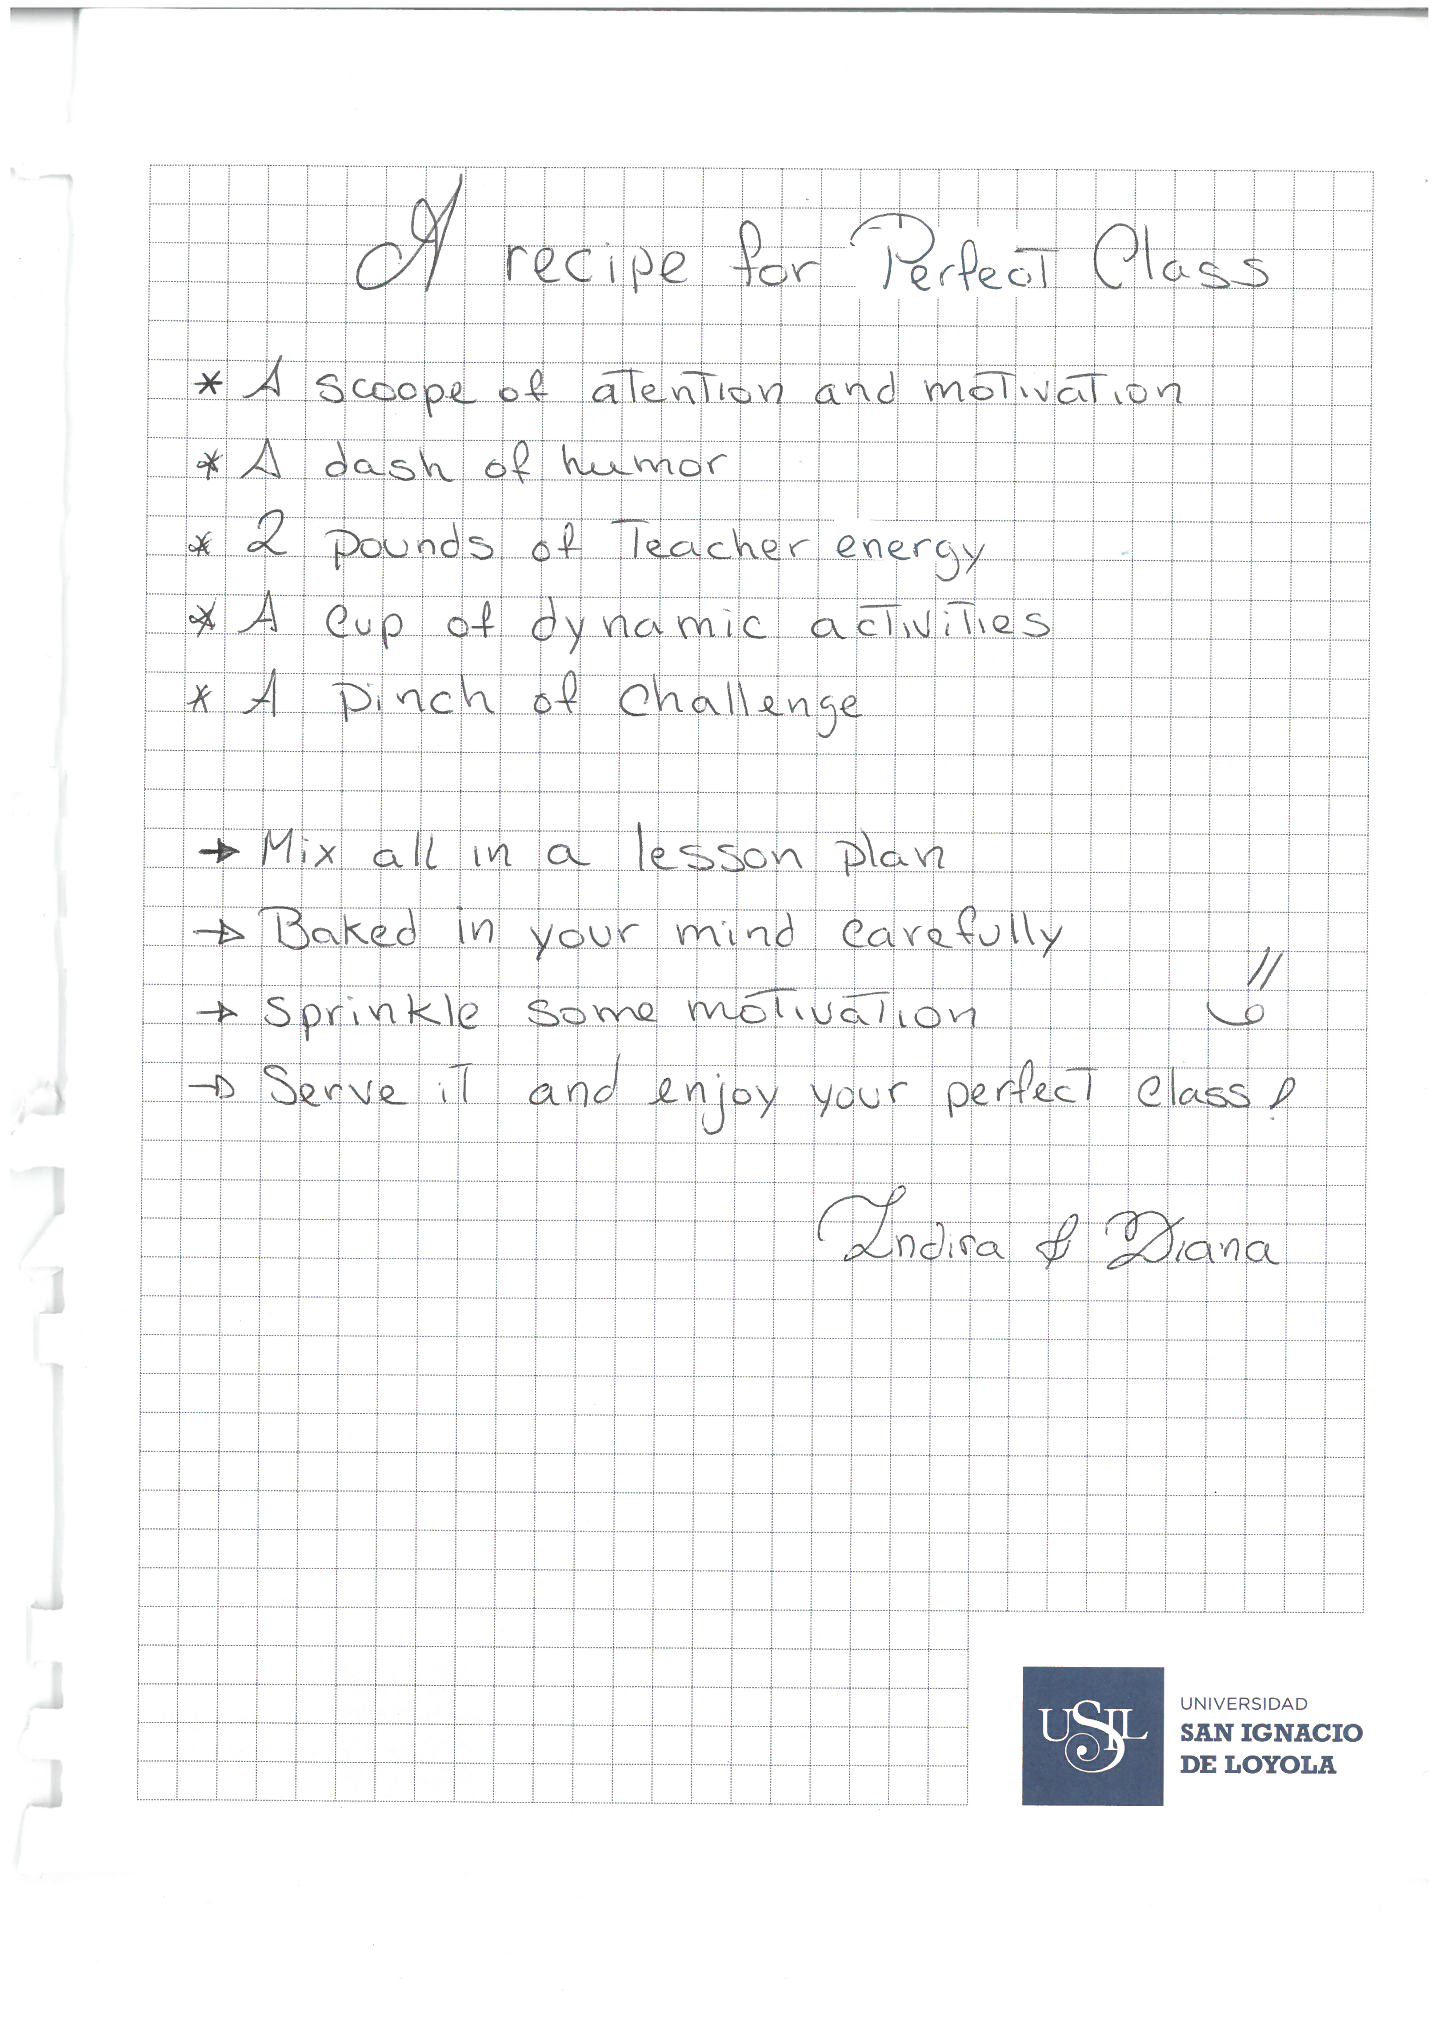 A recipe for Perfect Class
* A scoope of atention and motivation
* A dash of humor
* 2 pounds of Teacher energy
* A cup of dynamic activities
* A pinch of challenge
→ Mix all in a lesson plan
→ Baked in your mind carefully
→ Sprinkle some motivation
→ Serve it and enjoy your perfect class!
Indira & Diana
USIL
UNIVERSIDAD
SAN IGNACIO
DE LOYOLA